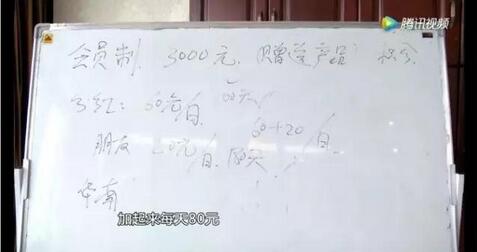 腾讯视频
会员制 3000元 (赠送产品) 积分
分红: 60元/日
60+20/日
朋友 20元/日
加起来每天80元